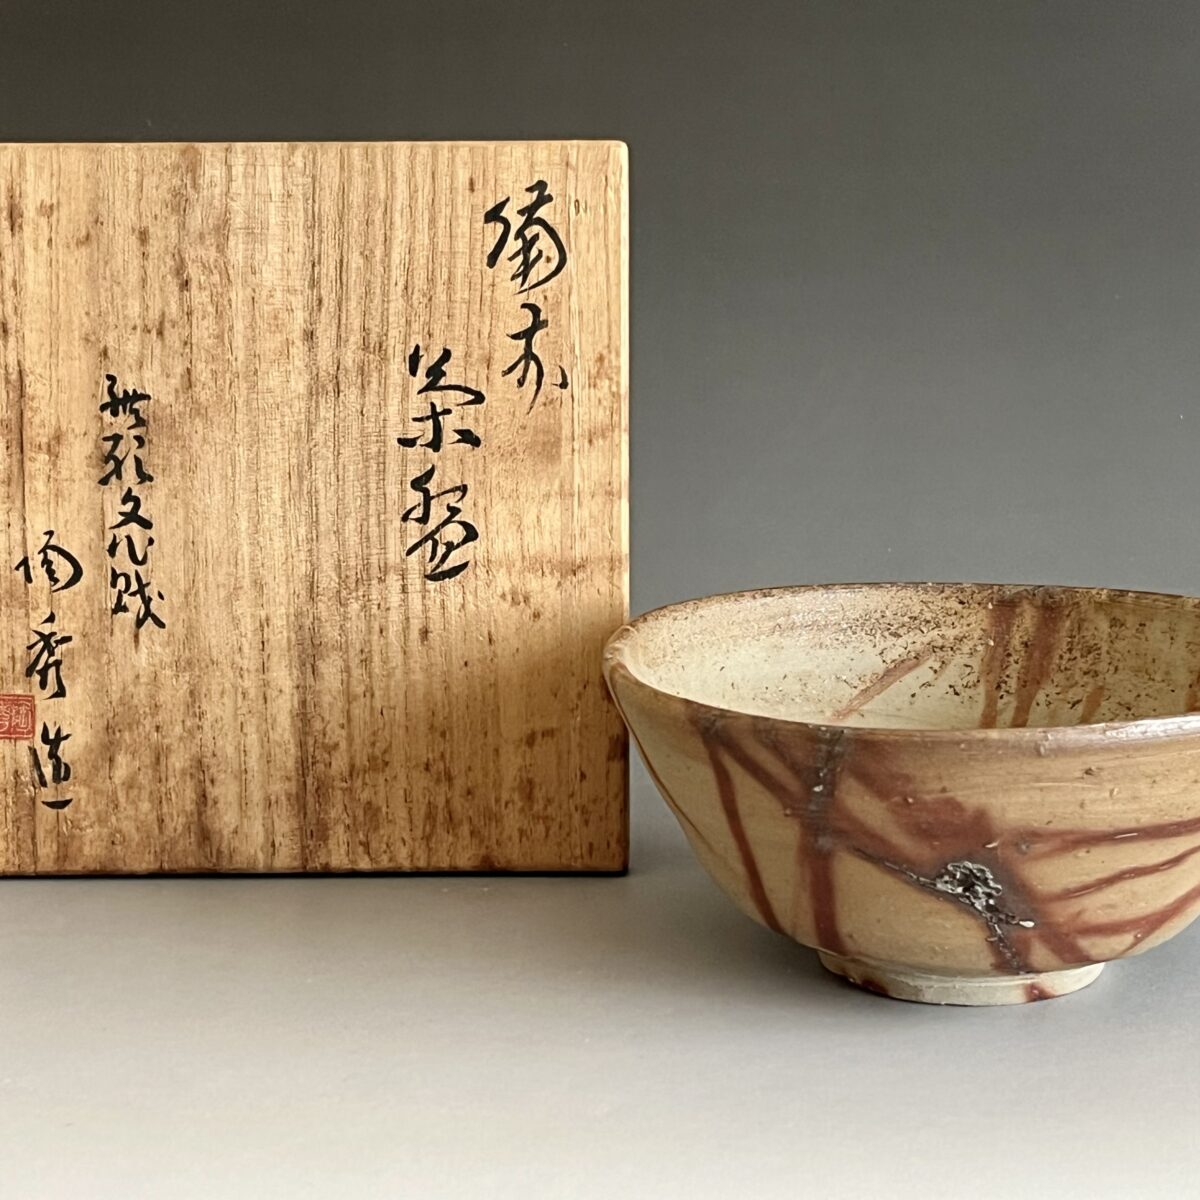 備前
茶盌
無形文化財
陶秀造